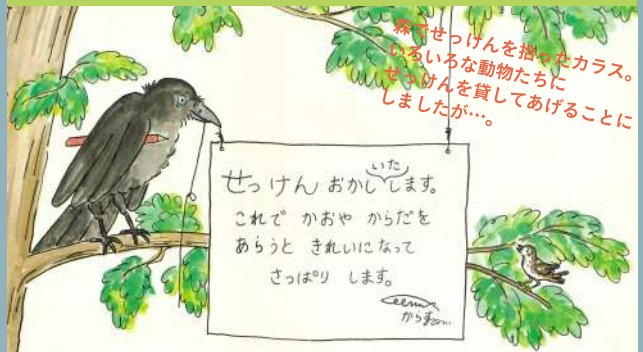 森でせっけんを拾ったカラス。
いろいろな動物たちに
せっけんを貸してあげることに
しましたが…。
せっけん おかしいたします。
これで かおや からだを
あらうと きれいになって
さっぱり します。
からす